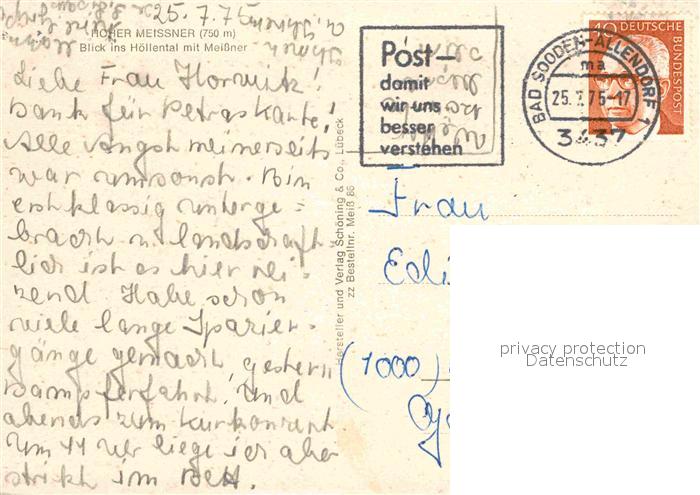 25.7.75
HOHER MEISSNER (750 m)
Blick ins Höllental mit Meißner
Liebe Frau Horwitz!
Dank für Petras Karte!
Alle Angst meinerseits
war umsonst. Bin
erstklassig unterge=
bracht u. landschaft
lich ist es hier rei-
zend. Habe schon
viele lange Spazier-
gänge gemacht, gestern
Dampferfahrt, und
abends zum Kurkonzert.
Um 11 Uhr liege ich aber
strikt im Bett.
Hersteller und Verlag Schöning & Co., Lübeck
zz Bestellnr. Meiß 86
Post–
damit
wir uns
besser
verstehen
BAD SOODEN-ALLENDORF 1
ma
25.7.75-17
3437
40 DEUTSCHE
BUNDESPOST
Frau
(1000)
privacy protection
Datenschutz